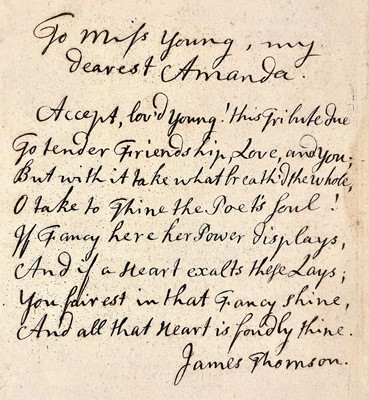 To Miss Young, my
dearest Amanda.
Accept, lov'd Young! this Tribute due
To tender Friendship, Love, and You;
But with it take what breath'd the whole,
O take to Thine the Poet's Soul!
If Fancy here her Power displays,
And if a Heart exalts these Lays;
You fairest in that Fancy shine,
And all that Heart is fondly thine.
James Thomson.